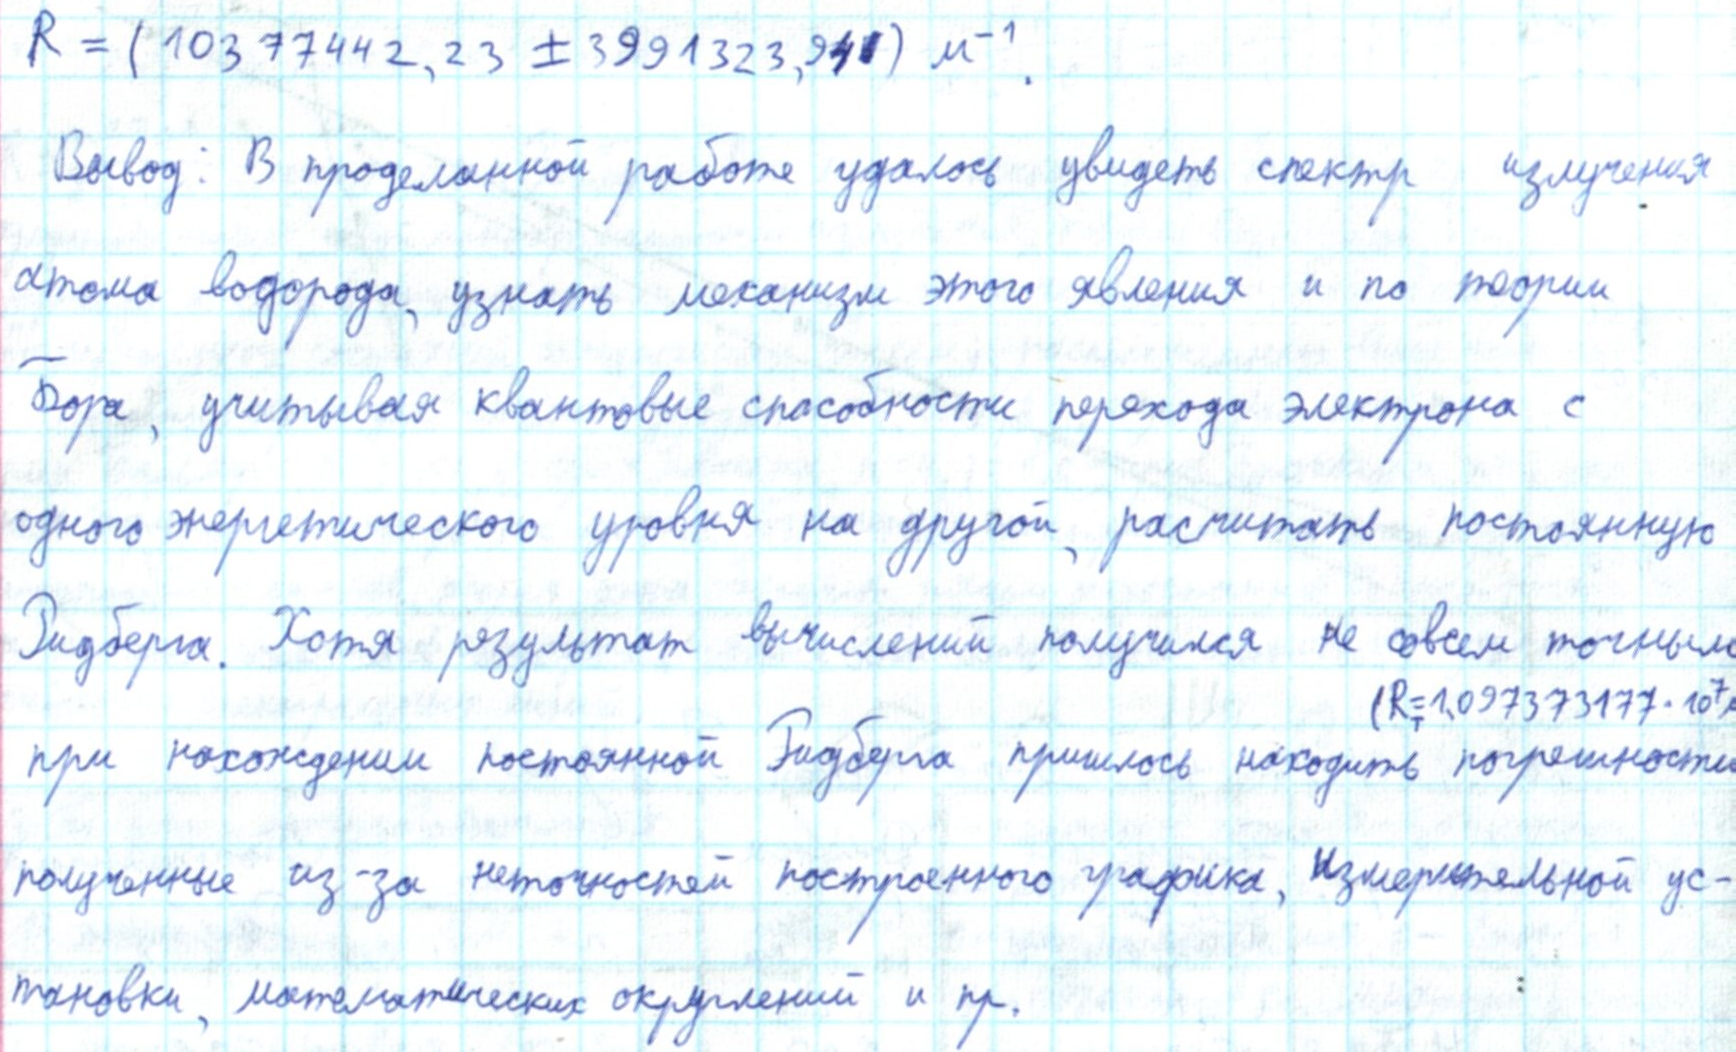 R = (10377442,23 ± 3991323,941) м⁻¹.
Вывод: В проделанной работе удалось увидеть спектр излучения
атома водорода, узнать механизм этого явления и по теории
Бора, учитывая квантовые способности перехода электрона с
одного энергетического уровня на другой, расчитать постоянную
Ридберга. Хотя результат вычислений получился не совсем точным
(Rт=1,097373177·10⁷
при нахождении постоянной Ридберга пришлось находить погрешности
полученные из-за неточностей построенного графика, измерительной ус-
тановки, математических округлений и пр.